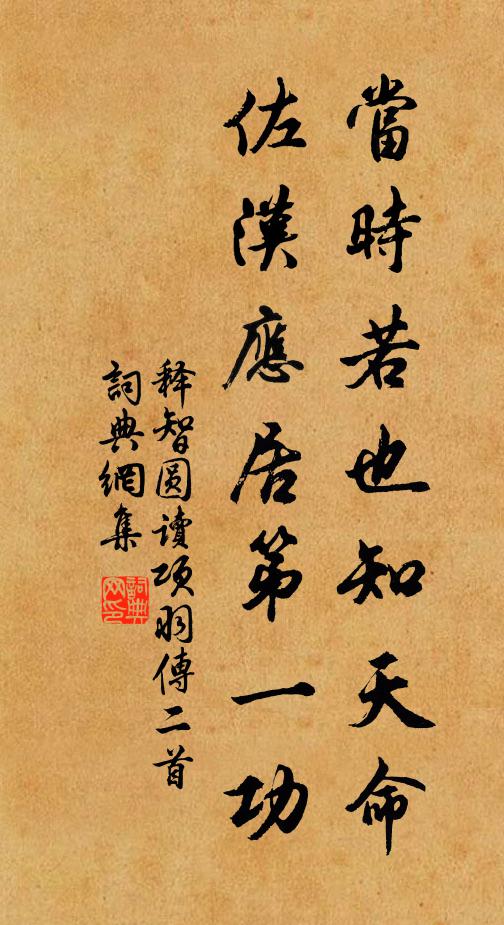 當時若也知天命
佐漢應居第一功
释智圆讀項羽傳二首
詞典網集
詞典網印